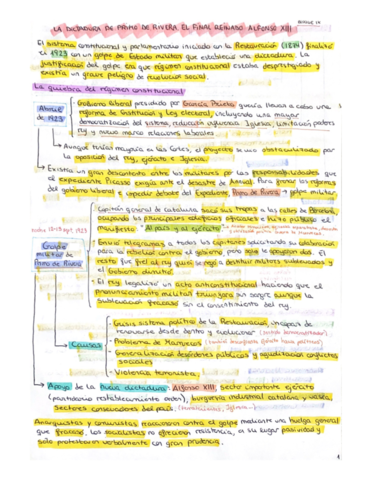 BLOQUE 10
LA DICTADURA DE PRIMO DE RIVERA. EL FINAL REINADO ALFONSO XIII
El sistema constitucional y parlamentario iniciado en la Restauración (1874) finalizó
en 1923 con un golpe de Estado militar que establecía una dictadura. La
justificación del golpe era que régimen constitucional estaba desprestigiado y
existía un grave peligro de revolución social.
La quiebra del régimen constitucional
Abril de 1923
Gobierno liberal presidido por García Prieto quería llevar a cabo una
reforma de Constitución y Ley electoral, incluyendo una mayor
democratización del sistema, reducción influencia Iglesia, limitación poderes
rey y nuevo marco relaciones laborales.
Aunque tenían mayoría en las Cortes, el proyecto se vio obstaculizado por
la oposición del rey, ejército e Iglesia.
Existía un gran descontento entre los militares por las responsabilidades que
el expediente Picasso exigía ante el desastre de Annual. Para frenar las reformas
del gobierno liberal e impedir debate del Expediente, Primo de Rivera golpe militar
Golpe militar de Primo de Rivera
Capitán general de Cataluña sacó sus tropas a las calles de Barcelona,
ocupando los principales edificios oficiales e hizo público el
manifiesto "Al país y al ejército"
Envió telegramas a todos los capitanes solicitando su colaboración
para la rebelión contra el gobierno pero solo le apoyaron dos. El
resto fue fiel al rey quien se negó a destituir militares sublevados y
el Gobierno dimitió.
El rey legalizó un acto anticonstitucional haciendo que el
pronunciamiento militar triunfara sin sangre, aunque la
sublevación fracasó sin el consentimiento del rey.
Causas
Crisis sistema político de la Restauración, incapaz de
renovarse desde dentro y evolucionar
Problema de Marruecos
Generalización desórdenes públicos y agudización conflictos
sociales
Violencia terrorista.
Apoyo de la nueva dictadura: Alfonso XIII, sector importante ejército
(partidario restablecimiento orden), burguesía industrial catalana y vasca,
sectores conservadores del país
Anarquistas y comunistas reaccionaron contra el golpe mediante una huelga general
que fracasó, los socialistas no ofrecieron resistencia, en su lugar pasividad y
solo protestaron verbalmente con gran prudencia.
1